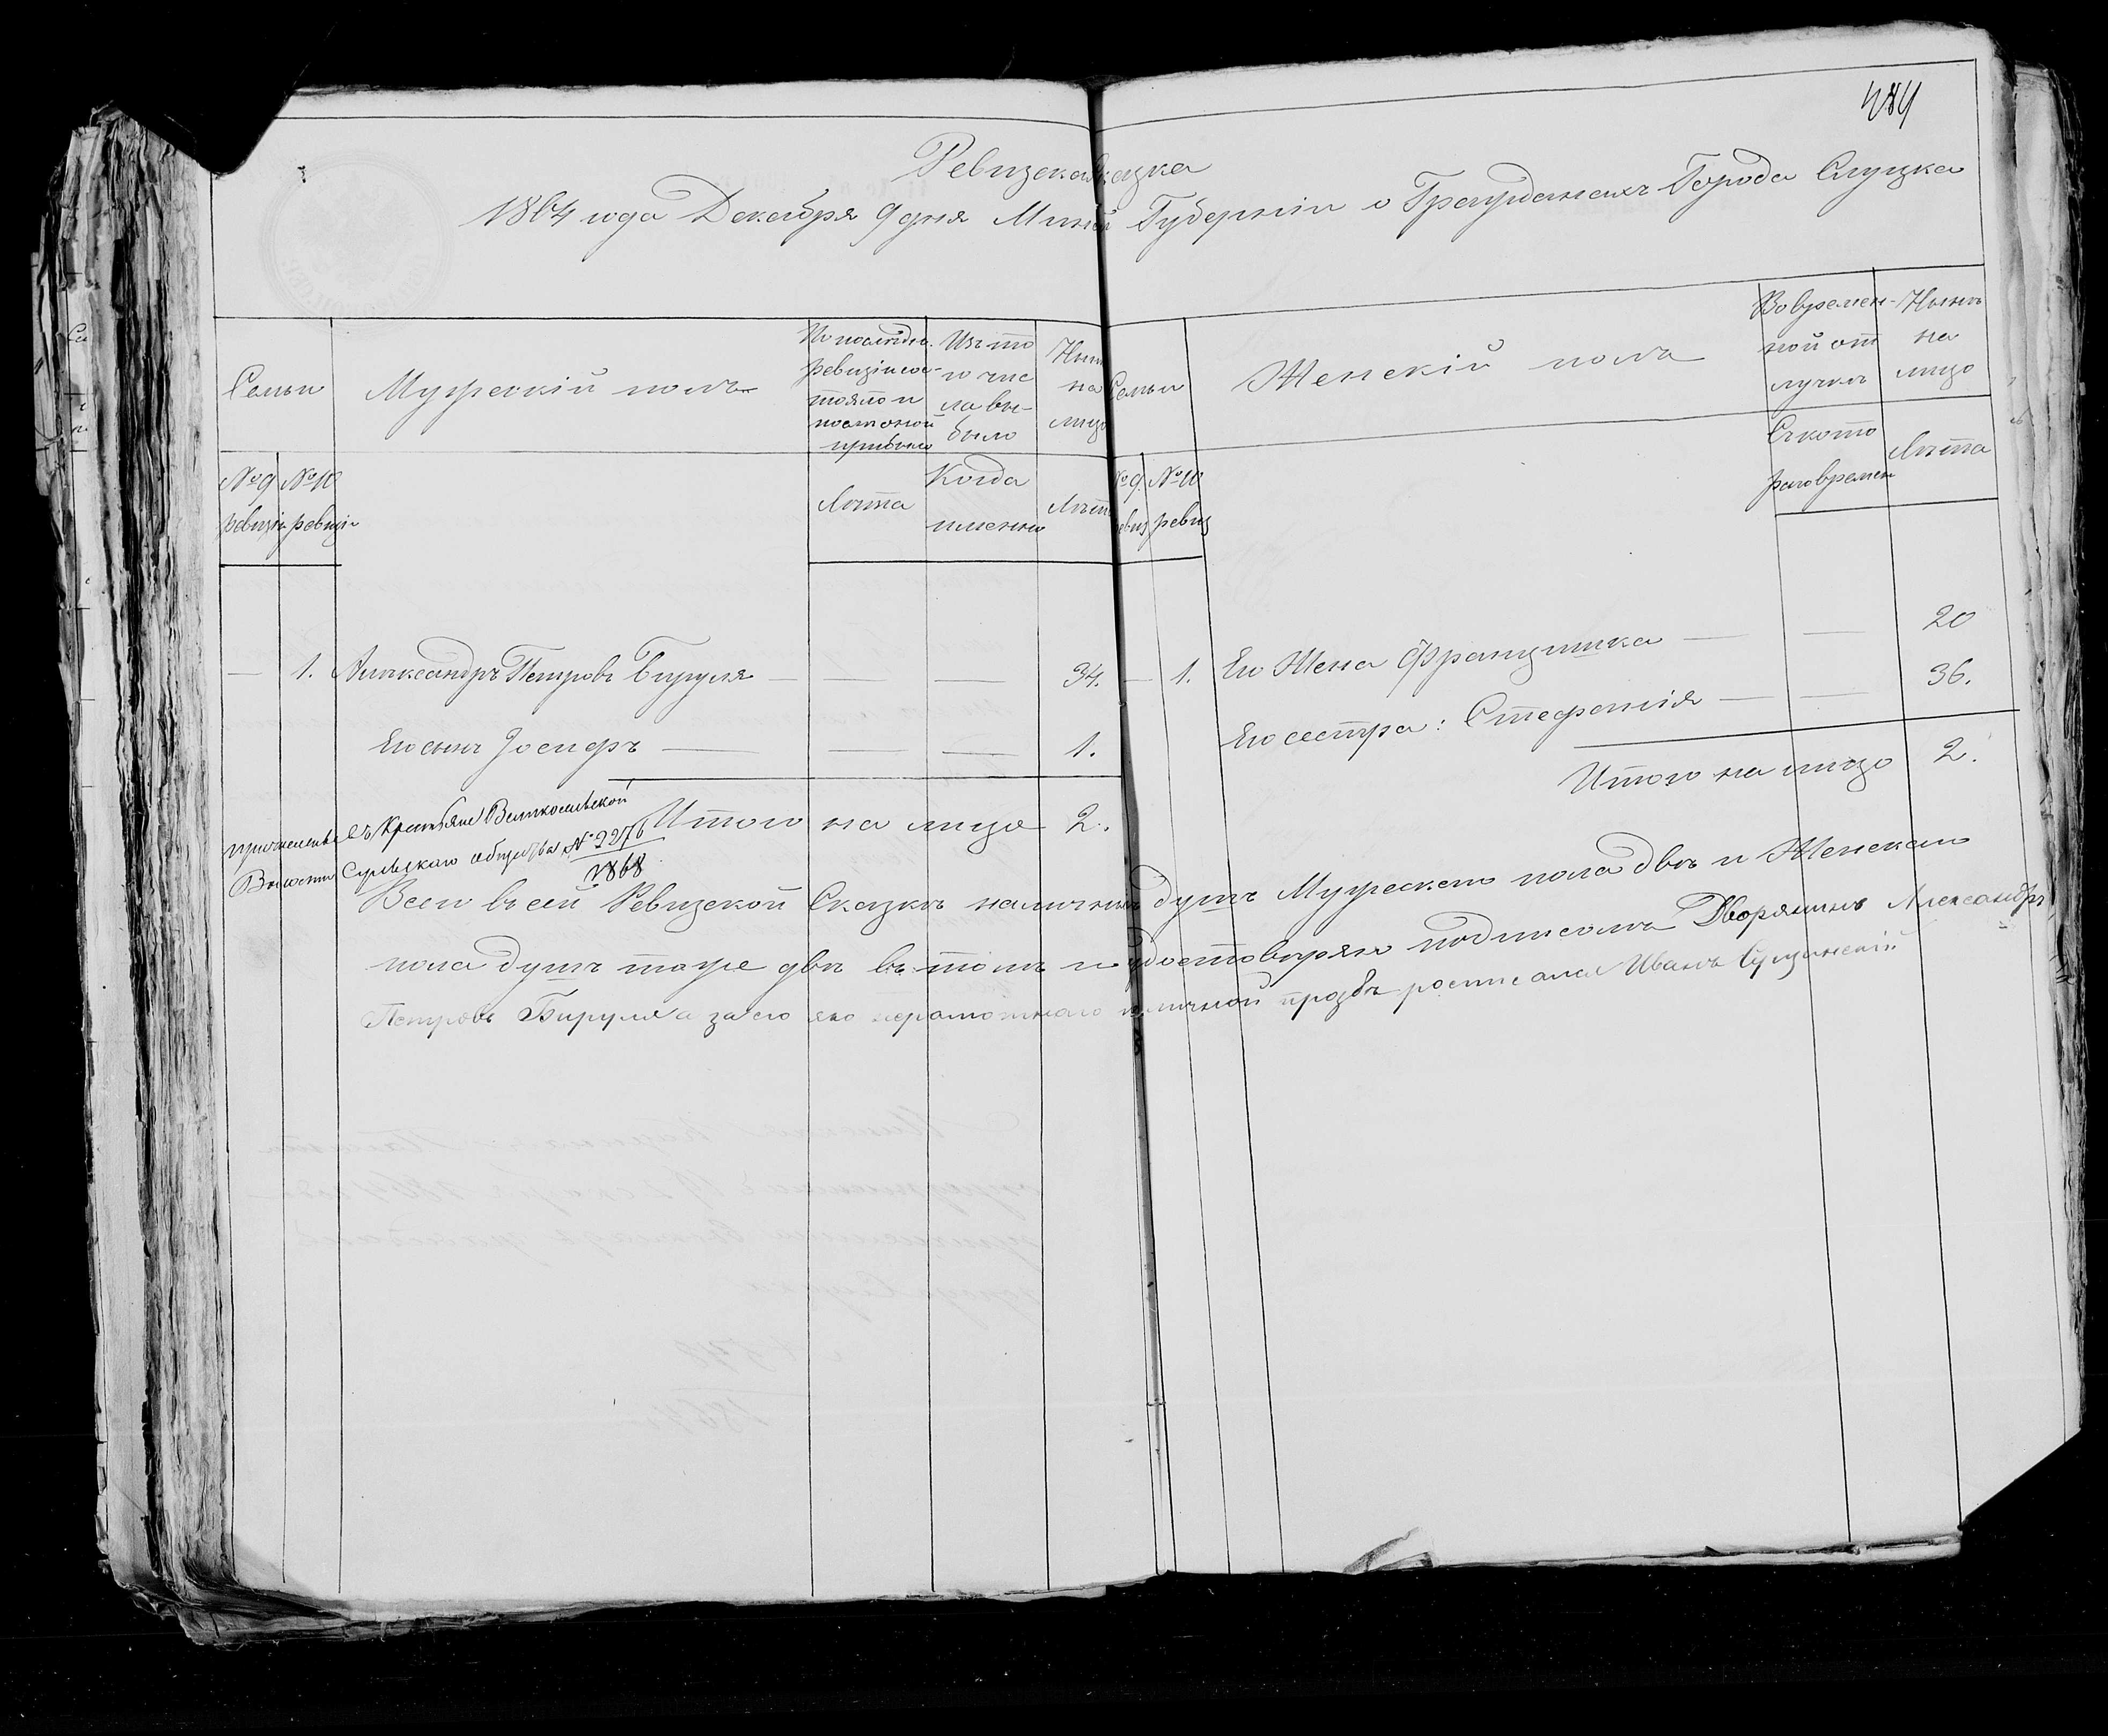 484
Ревизская Сказка
1864 года Декабря 9 дня Минской Губерніи о Гражданахъ Города Слуцка
Семьи
Мужескій полъ
По последней ревизіи состояло и после оной прибыло
Изъ того числа выбыло
Ныне на лицо
№ 9 ревизіи
№ 10 ревизіи
Лѣта
Когда именно
Лѣта
Семьи
Женскій полъ
Во временной отлучкѣ
Нынѣ на лицо
№ 9 ревиз
№ 10 ревиз
Съ котораго времени
Лѣта
— 1. Александръ Петровъ Бируля — — — 34.
Его сынъ Іосифъ — — — 1.
Итого на лицо 2.
— 1. Его Жена Францишка — — 20
Его сестра: Стефанія — — 36.
Итого на лицо 2.
въ Крестьяне
Волости общества № 2276
1868
Всего въ сей Ревизской Сказкѣ наличныхъ душъ Мужескаго пола двѣ и Женскаго
пола душъ тоже двѣ въ томъ и удостовѣряю подписомъ Дворянинъ Александръ
Петровъ Бируля а за его яко неграмотнаго и личной прозбѣ росписался Иванъ